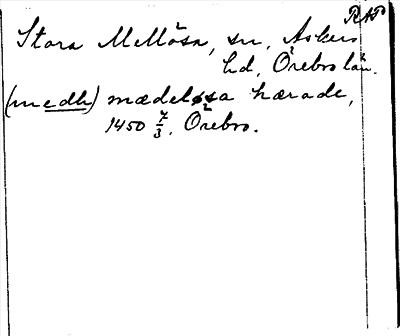 RAP
Stora Mellösa, sn, Askers
hd, Örebro län.
(medh) mædeløsa hærade,
1450 7/3. Örebro.